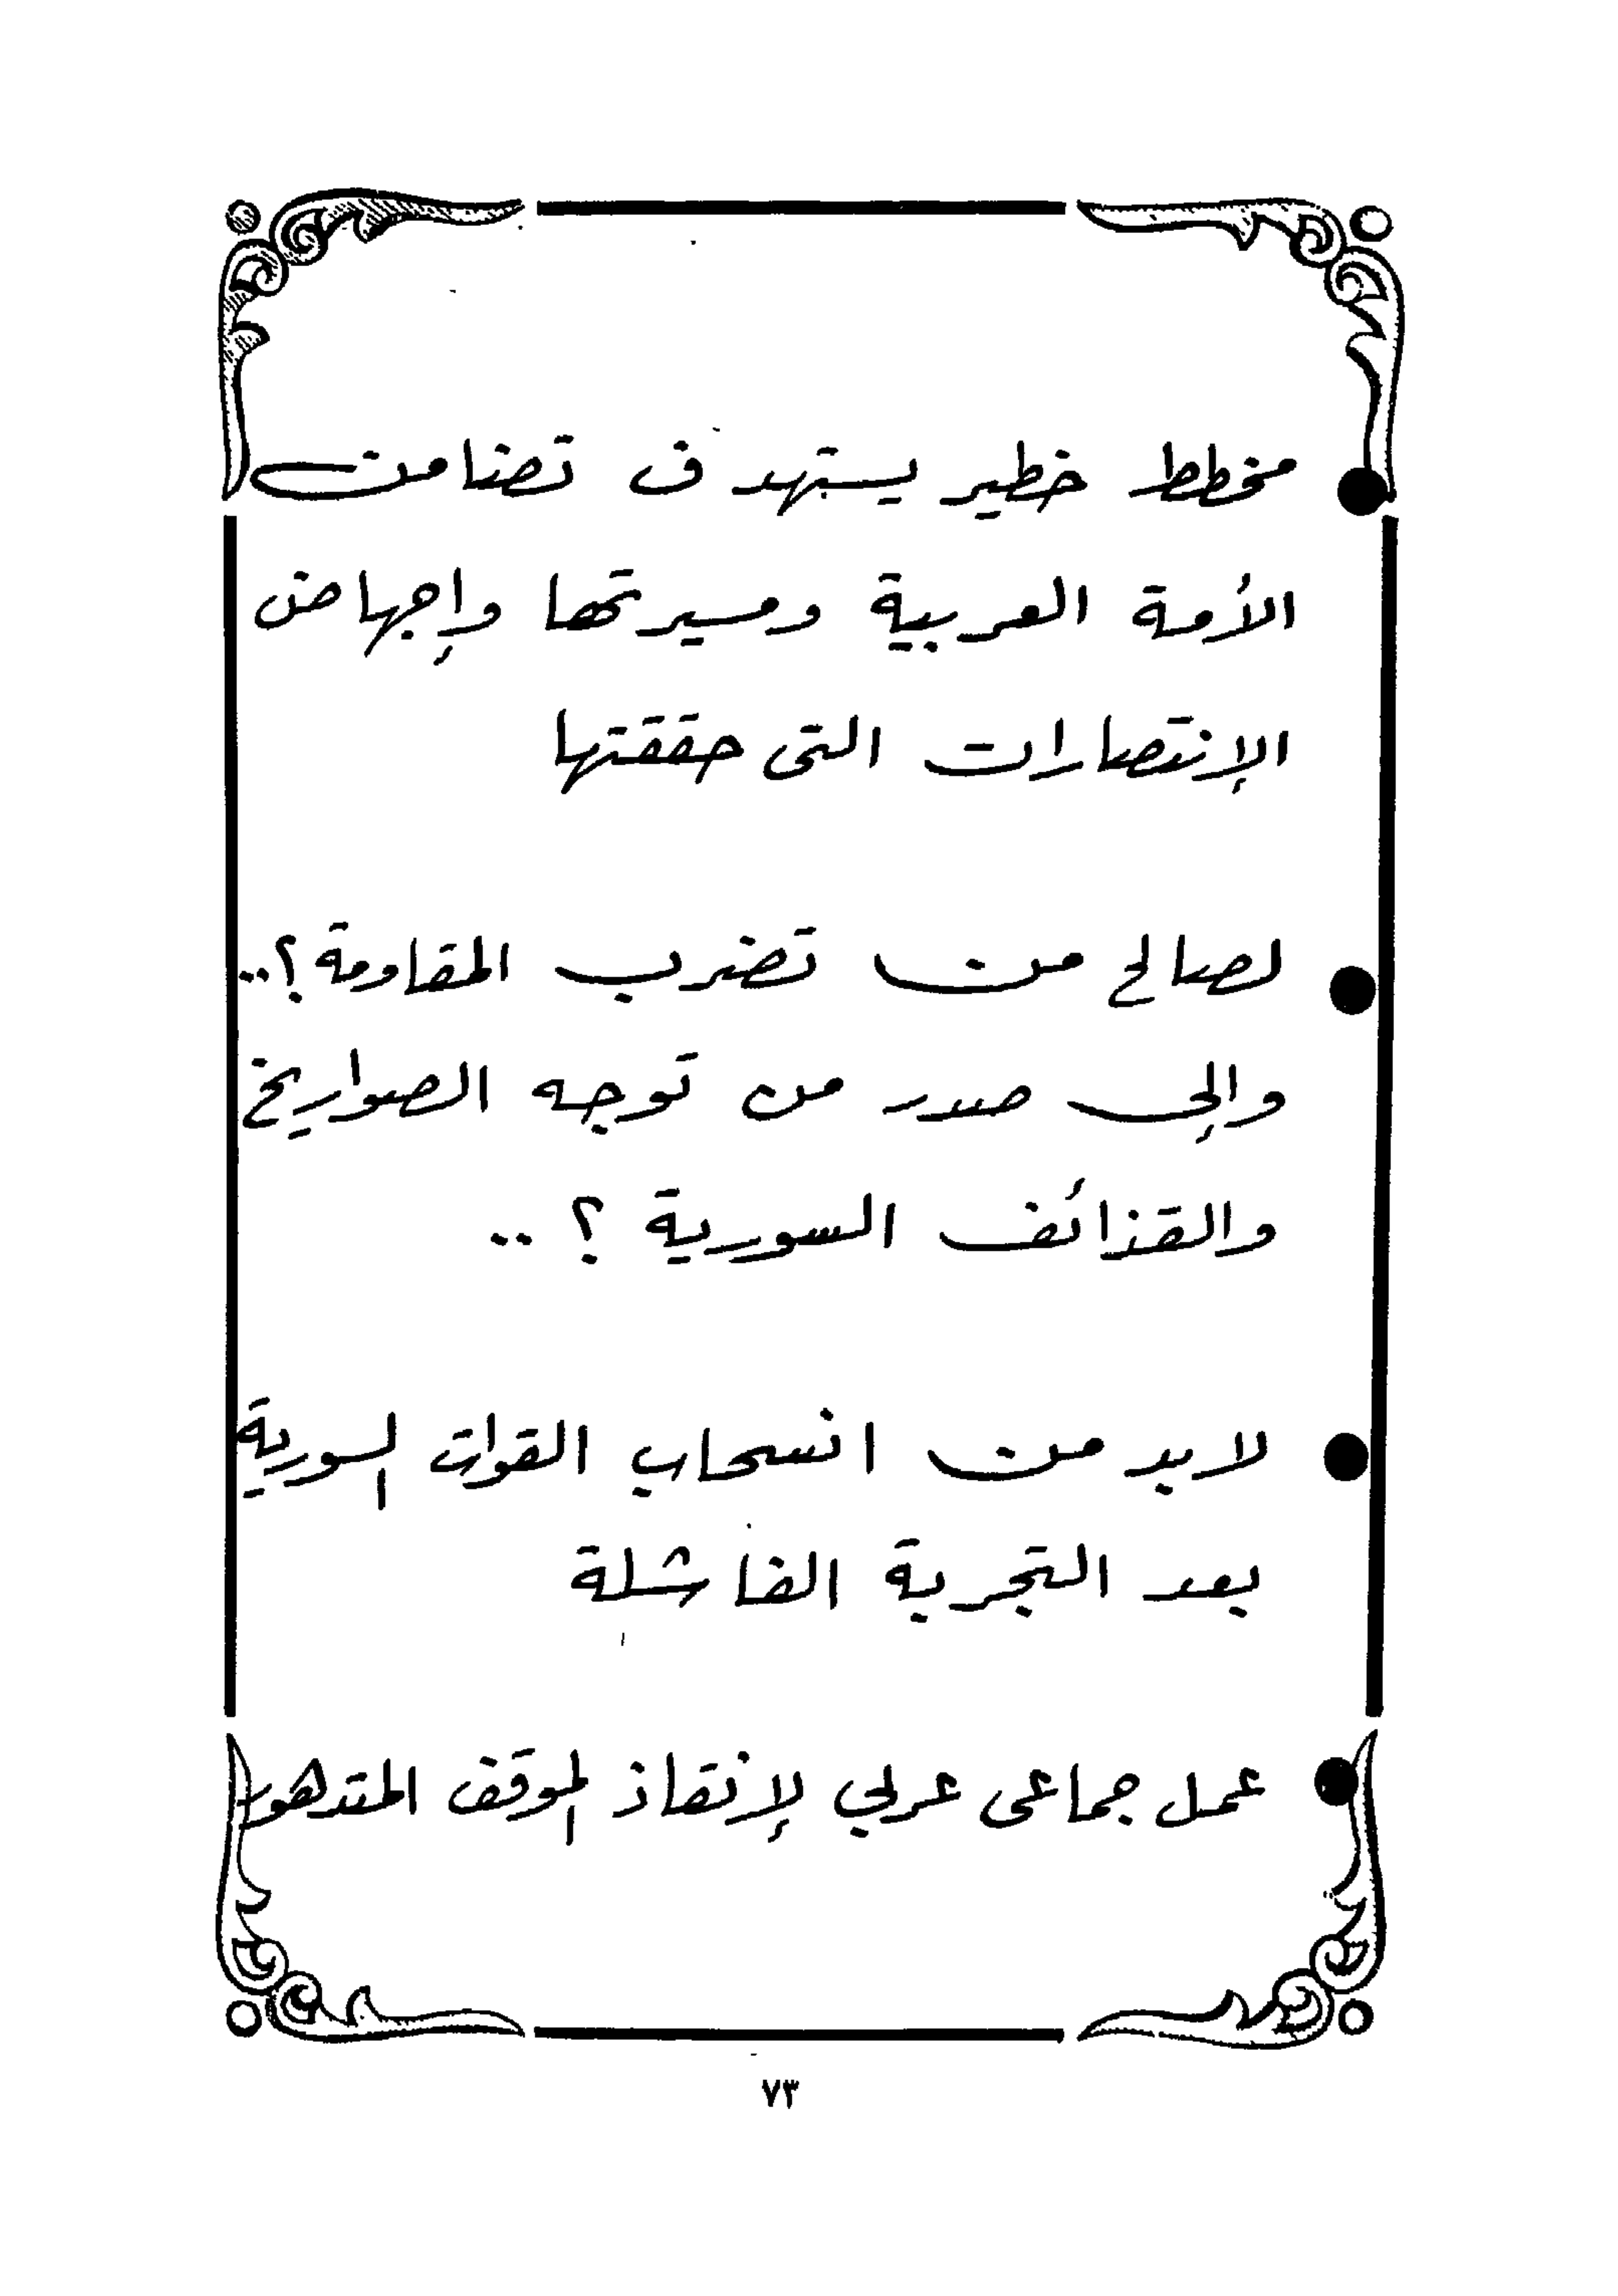 ● مخطط خطير يستهدف تضامن
الأمة العربية ومسيرتها وإجهاض
الإنتصارات التى حققتها
● لصالح من تضرب المقاومة؟..
وإلى صدر من توجه الصواريخ
والقذائف السورية ؟ ..
● لابد من انسحاب القوات السورية
بعد التجربة الفاشلة
● عمل جماعى عربي لإنقاذ الموقف المتدهور
٧٣